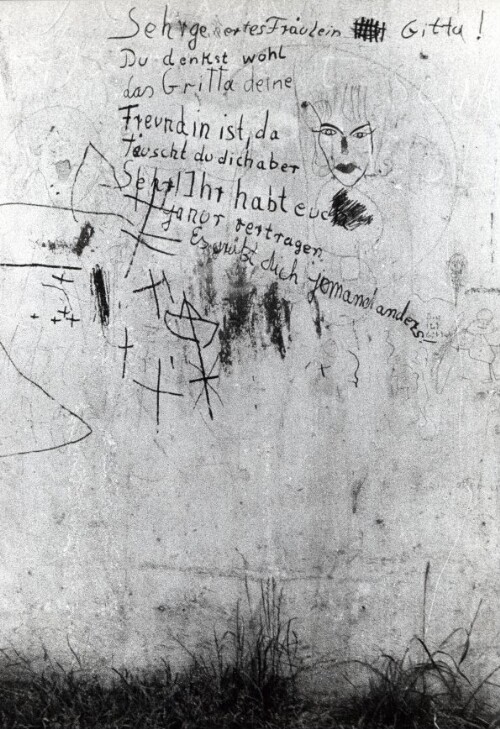 Sehrgeertes Fräulein Gitta !
Du denkst wohl
das Gritta deine
Freundin ist, da
Täuscht du dich aber
Sehr! Ihr habt euch
ja nur vertragen.
Es grüßt dich jemand anders!